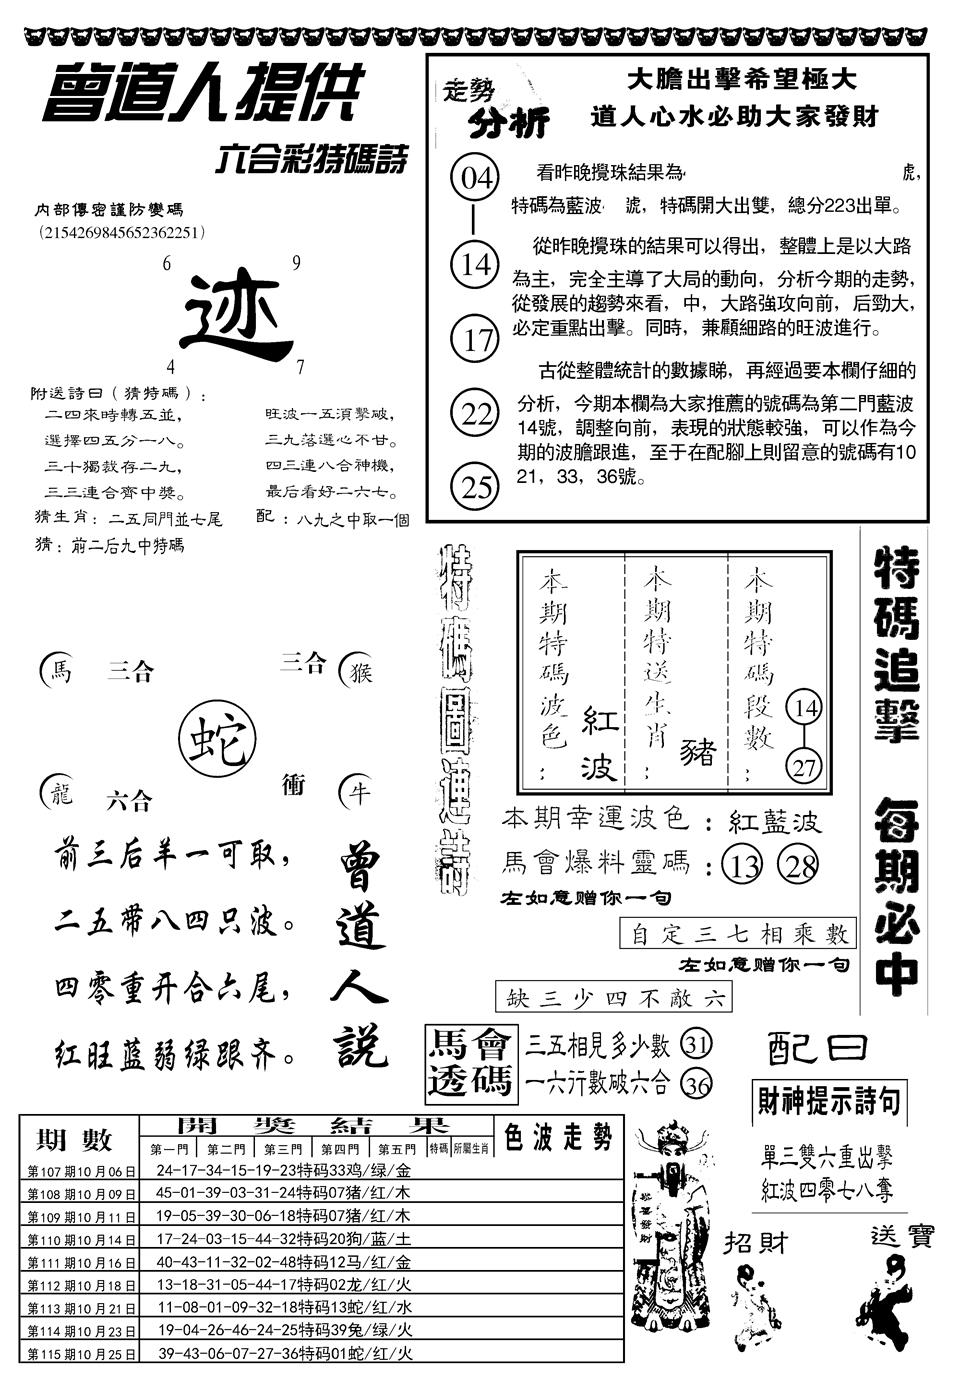 曾道人提供
六合彩特碼詩
内部傳密謹防變碼
（2154269845652362251）
6 9
迹
4 7
附送詩曰（猜特碼）：
二四來時轉五並， 旺波一五須擊破，
選擇四五分一八。 三九落選心不甘。
三十獨裁存二九， 四三連八合神機，
三三連合齊中獎。 最后看好二六七。
猜生肖：二五同門並七尾 配：八九之中取一個
猜：前二后九中特碼
走勢
分析
大膽出擊希望極大
道人心水必助大家發財
04
14
17
22
25
看昨晚攪珠結果為 虎，
特碼為藍波 號，特碼開大出雙，總分223出單。
從昨晚攪珠的結果可以得出，整體上是以大路
為主，完全主導了大局的動向，分析今期的走勢，
從發展的趨勢來看，中，大路強攻向前，后勁大，
必定重點出擊。同時，兼顧細路的旺波進行。
古從整體統計的數據睇，再經過要本欄仔細的
分析，今期本欄為大家推薦的號碼為第二門藍波
14號，調整向前，表現的狀態較強，可以作為今
期的波膽跟進，至于在配腳上則留意的號碼有10
21，33，36號。
馬 三合 三合 猴
蛇
龍 六合 衝 牛
前三后羊一可取，
二五带八四只波。
四零重开合六尾，
红旺蓝弱绿跟齐。
曾道人説
特碼圖連詩
本期特碼波色：
紅波
本期特送生肖：
豬
本期特碼段數：
14
27
本期幸運波色：紅藍波
馬會爆料靈碼：13 28
左如意赠你一句
自定三七相乘數
左如意赠你一句
缺三少四不敵六
特碼追擊 每期必中
馬會透碼
三五相見多少數 31
一六行數破六合 36
配曰
財神提示詩句
單三雙六重出擊
紅波四零七八奪
招財
送寶
期數 開獎結果 色波走勢
第一門 第二門 第三門 第四門 第五門 特碼 所屬生肖
第107期10月06日 24-17-34-15-19-23特码33鸡/绿/金
第108期10月09日 45-01-39-03-31-24特码07猪/红/木
第109期10月11日 19-05-39-30-06-18特码07猪/红/木
第110期10月14日 17-24-03-15-44-32特码20狗/蓝/土
第111期10月16日 40-43-11-32-02-48特码12马/红/金
第112期10月18日 13-18-31-05-44-17特码02龙/红/火
第113期10月21日 11-08-01-09-32-18特码13蛇/红/水
第114期10月23日 19-04-26-46-24-25特码39兔/绿/火
第115期10月25日 39-43-06-07-27-36特码01蛇/红/火